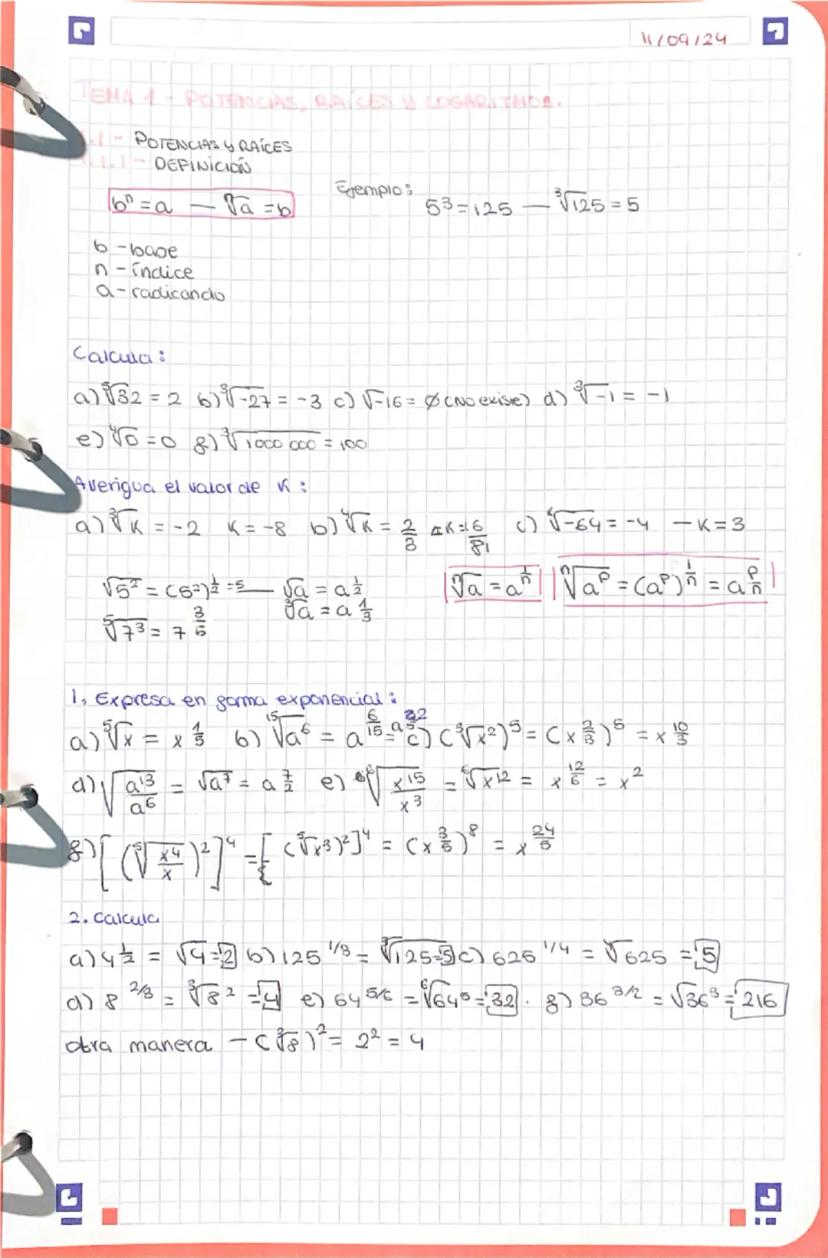 11/09/24
TEMA 1 - POTENCIAS, RAÍCES Y LOGARITMOS.
1.1 - POTENCIAS Y RAÍCES
1.1.1 - DEFINICIÓN
bⁿ = a — ⁿ√a = b Ejemplo: 5³ = 125 — ³√125 = 5
b - base
n - índice
a - radicando
Calcula:
a) ⁵√32 = 2 b) ³√-27 = -3 c) √-16 = ∅ (No existe) d) ³√-1 = -1
e) ⁴√0 = 0 f) ³√1000 000 = 100
Averigua el valor de K:
a) ³√K = -2 K = -8 b) ⁴√K = 2/3 K = 16/81 c) ᴷ√-64 = -4 — K = 3
√5² = (5²)^1/2 = 5 — √a = a^1/2 ⁿ√a = a^1/n ⁿ√a^p = (a^p)^1/n = a^p/n
³√a = a^1/3
⁵√7³ = 7^3/5
1. Expresa en forma exponencial:
a) ⁵√x = x^1/5 b) ¹⁵√a⁶ = a^6/15 = a^2/5 c) (³√x²)⁵ = (x^2/3)⁵ = x^10/3
d) √a¹³/a⁶ = √a⁷ = a^7/2 e) ⁶√x¹⁵/x³ = ⁶√x¹² = x^12/6 = x²
f) [(⁵√x⁴/x)²]⁴ = [(⁵√x³)²]⁴ = (x^3/5)⁸ = x^24/5
2. Calcula
a) 4^1/2 = √4 = 2 b) 125^1/3 = ³√125 = 5 c) 625^1/4 = ⁴√625 = 5
d) 8^2/3 = ³√8² = 4 e) 64^5/6 = ⁶√64⁵ = 32. f) 36^3/2 = √36³ = 216
otra manera — (³√8)² = 2² = 4